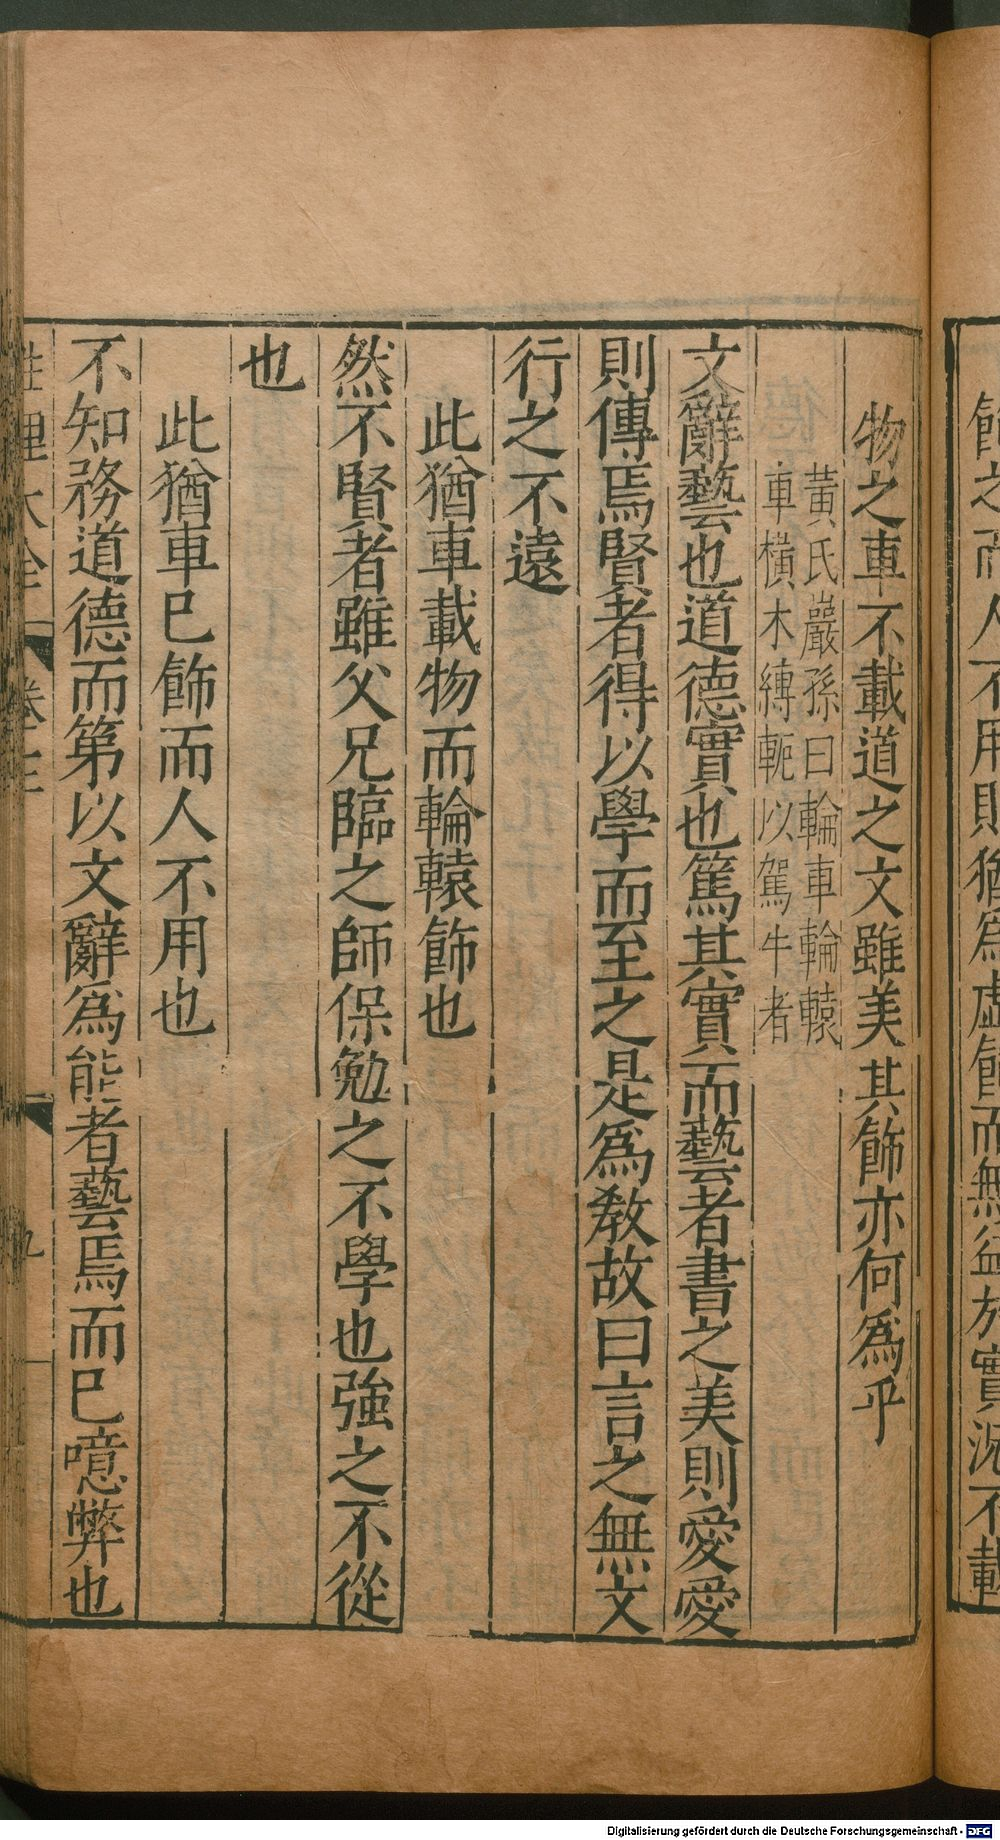 飾之而人不用則猶為虛飾而無益於實況不載
物之車不載道之文雖美其飾亦何為乎
黃氏巖孫曰輪車輪轅
車橫木縛軛以駕牛者
文辭藝也道德實也篤其實而藝者書之美則愛愛
則傳焉賢者得以學而至之是為教故曰言之無文
行之不遠
此猶車載物而輪轅飾也
然不賢者雖父兄臨之師保勉之不學也強之不從
也
此猶車已飾而人不用也
不知務道德而第以文辭為能者藝焉而已噫弊也
性理大全 卷二 九
Digitalisierung gefördert durch die Deutsche Forschungsgemeinschaft - DFG